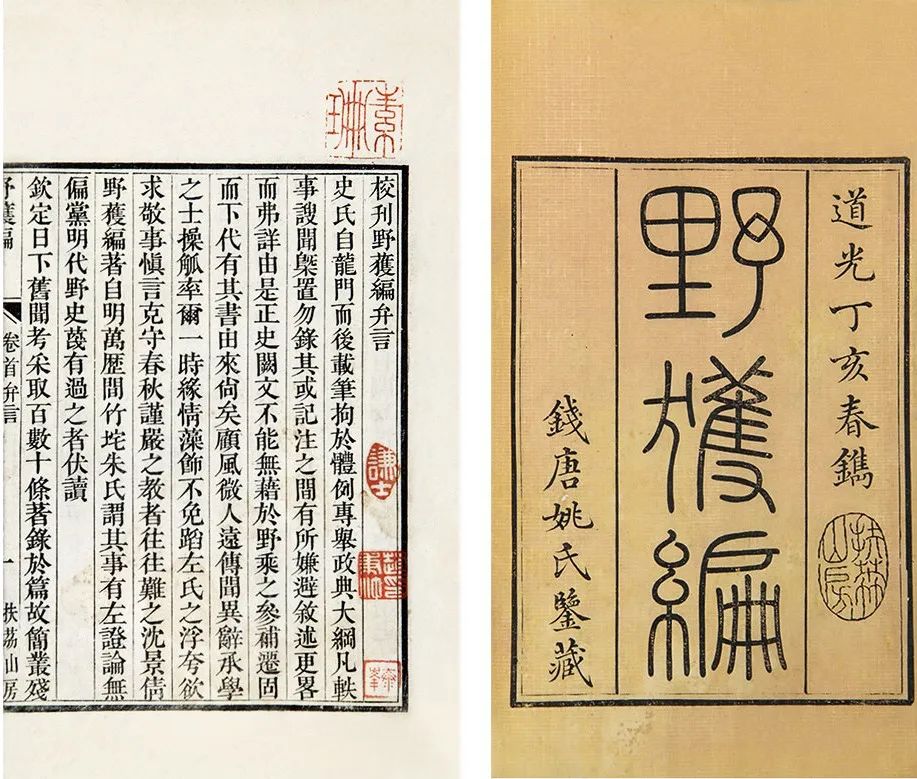 道光丁亥春鐫
扶荔山房
野獲編
錢唐姚氏鑒藏
校刊野獲編弁言
史氏自龍門而後載筆拘於體例專舉政典大綱凡軼
事謏聞槩置勿錄其或記注之間有所嫌避敘述更畧
而弗詳由是正史闕文不能無藉於野乘之參補遷固
而下代有其書由來尙矣顧風微人遠傳聞異辭承學
之士操觚率爾一時緣情藻飾不免蹈左氏之浮夸欲
求敬事愼言克守春秋謹嚴之教者往往難之沈景倩
野獲編著自明萬歷間竹垞朱氏謂其事有左證論無
偏黨明代野史蔑有過之者伏讀
欽定日下舊聞考采取百數十條著錄於篇故簡叢殘
野獲編 卷首弁言 一 扶荔山房
謙士